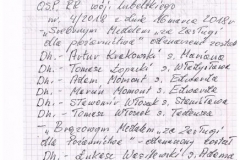 OSP RP woj. Lubelskiego
nr. 4/2018 z dnia 16 marca 2018r
"Srebrnym Medalem "za Zasługi
dla pożarnictwa" odznaczeni zostali
Dh. - Artur Krakowski s. Mariana
Dh. - Tomasz s. Władysława
Dh. - Adam Momont s. Edwarda
Dh. - Marcin Momont s. Edwarda
Dh. - Sławomir Włosek s. Stanisława
Dh. - Tomasz Włosek s. Tadeusza
- "Brązowym Medalem "za Zasługi
dla Pożarnictwa" - odznaczony został
Dh. - Łukasz Wasilewski s. Adama